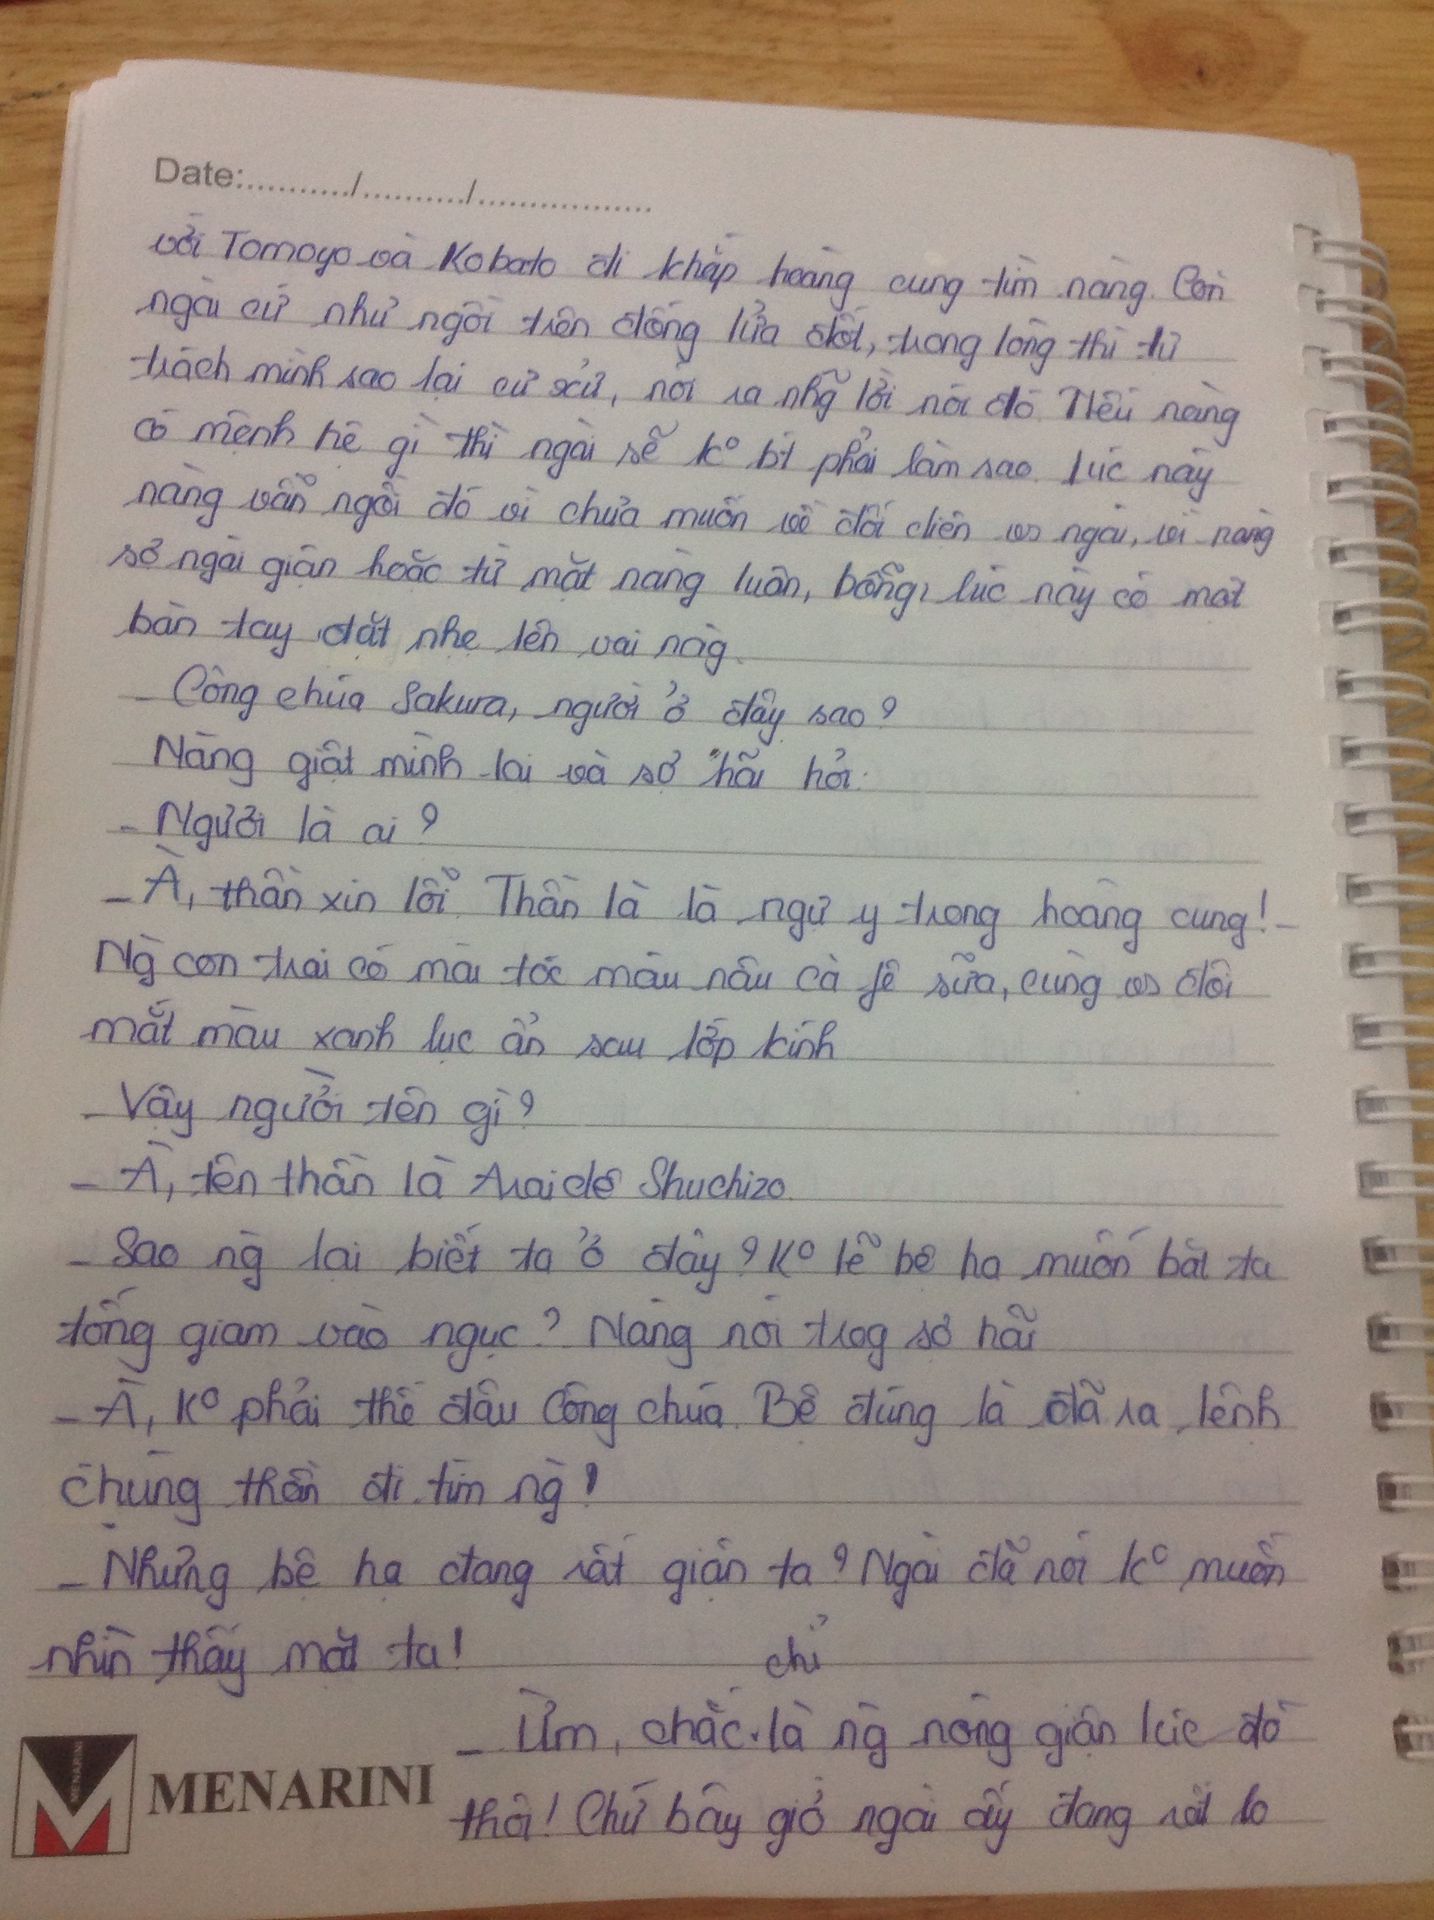 Date:.........../.........../...................
với Tomoyo và Kobato đi khắp hoàng cung tìm nàng. Còn
ngài cứ như ngồi trên đống lửa đốt, trong lòng thì tự
trách mình sao lại cư xử, nói ra nhg̃ lời nói đó. Nếu nàng
có mệnh hệ gì thì ngài sẽ k⁰ bt phải làm sao. Lúc này
nàng vẫn ngồi đó vì chưa muốn về đối diện vs ngài, vì nàng
sợ ngài giận hoặc từ mặt nàng luôn, bỗng, lúc này có một
bàn tay đặt nhẹ lên vai nàg.
- Công chúa Sakura, người ở đây sao?
Nàng giật mình lại và sợ hãi hỏi:
- Ngươi là ai?
- À, thần xin lỗi. Thần là là ngự y trong hoàng cung! -
Ng̀ con trai có mái tóc màu nâu cà fê sữa, cùng vs đôi
mắt màu xanh lục ẩn sau lớp kính
- Vậy ngươi tên gì?
- À, tên thần là Araide Shuchizo.
- Sao ng̀ lại biết ta ở đây? K⁰ lẽ bệ hạ muốn bắt ta
tống giam vào ngục? Nàng nói trog sợ hãi
- À, k⁰ phải thế đâu Công chúa. Bệ đúng là đã ra lệnh
chúng thần đi tìm ng̀!
- Nhưng bệ hạ đang rất giận ta? Ngài đã nói k⁰ muốn
nhìn thấy mặt ta!
chỉ
- Ừm, chắc là ng̀ nóng giận lúc đó
MENARINI
thôi! Chứ bây giờ ngài ấy đang rất lo